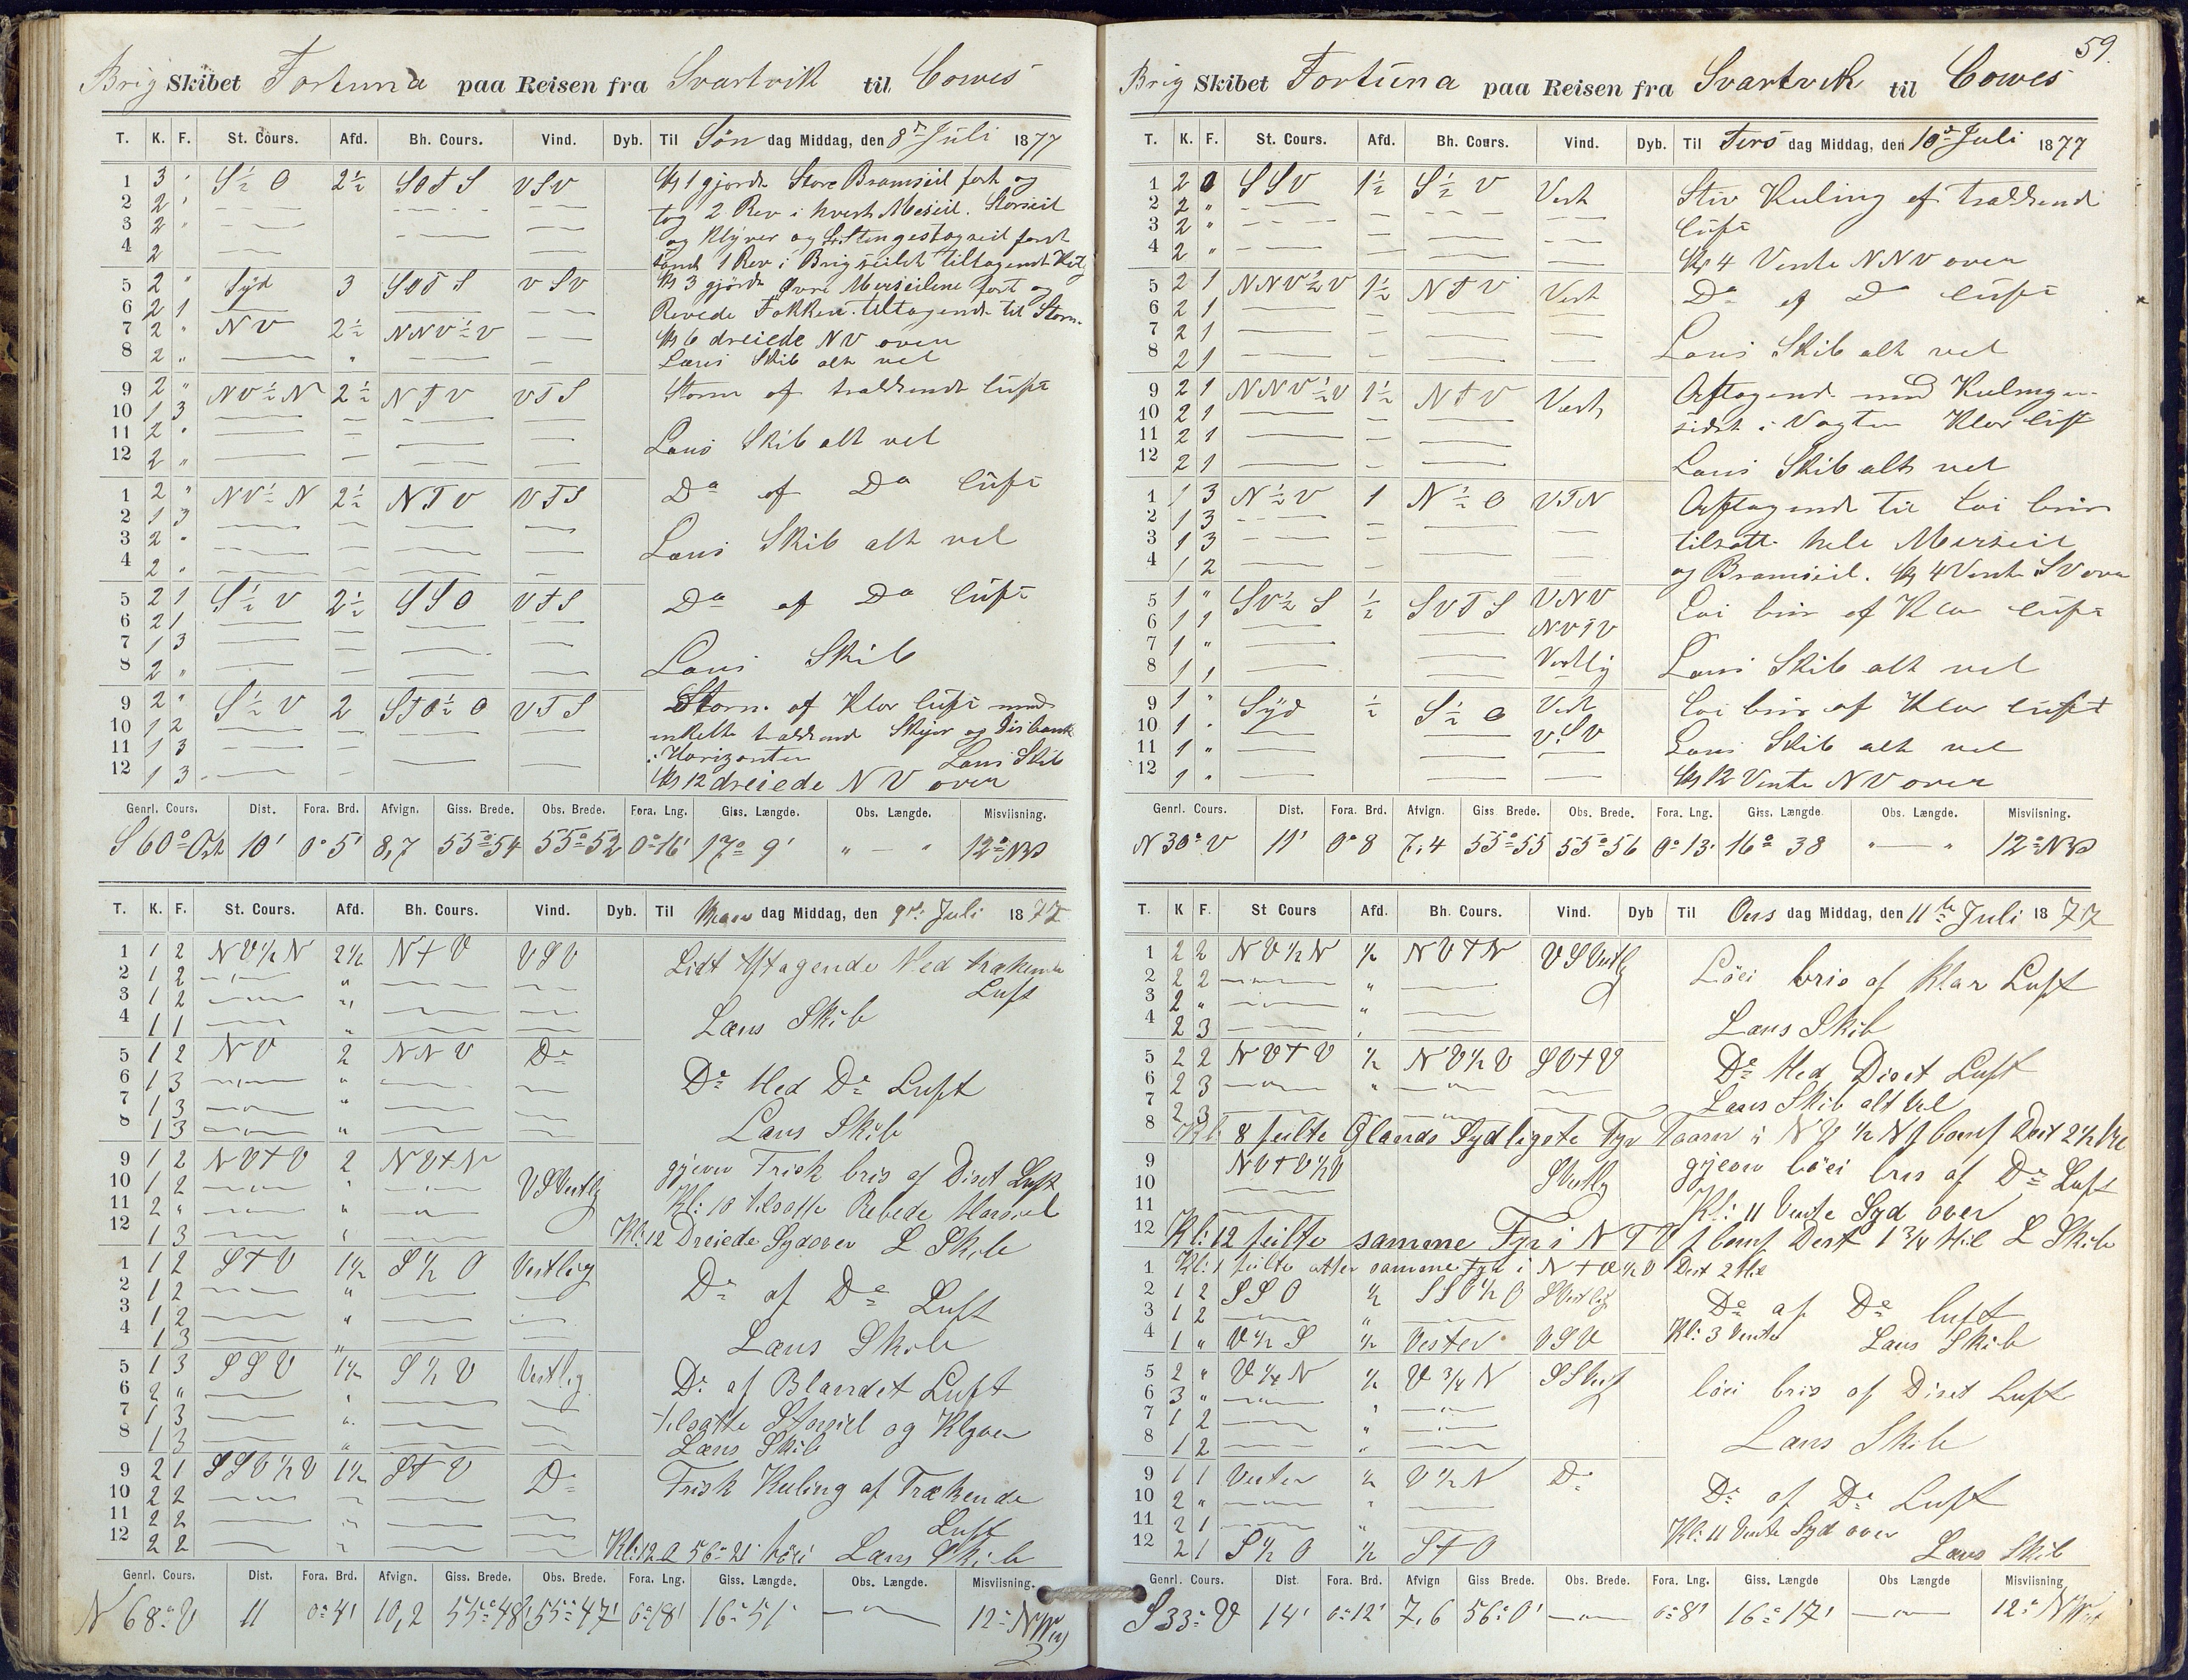 Brig Skibet Fortuna paa Reisen fra Svartvik til Cowes
T. K. F. St. Cours. Afd. Bh. Cours. Vind. Dyb. Til Søn dag Middag, den 8de Juli 1877
1 3 " S½O 2½ SOTS VSV Kl 1 gjorde Store Bramseil fast og
2 2 " tog 2 Rev i hvert Meseil. Storseil
3 2 " og Klyver og St. Stengestagseil fast
4 2 1 Rev i Brigseilet tiltagende
5 2 " Syd 3 SOTS VSV Kl 3 gjorde Øvre Merseilene fast og
6 2 1 Revede Fokken. tiltagende til Storm.
7 2 " NV 2½ NNV½V Kl 6 dreiede NV over
8 2 " " Læns Skib alt vel
9 2 " NV½N 2½ NTV VTS Storm af trækkende luft
10 1 3
11 2 " Læns Skib alt vel
12 2 "
1 2 " NV½N 2½ NTV VTS Do af Do luft
2 1 3
3 2 " Læns Skib alt vel
4 2 "
5 2 1 S½V 2½ SSO VTS Do af Do luft
6 2 1
7 1 3
8 2 " Læns Skib
9 2 " S½V 2 STO½O VTS Storm af Klar luft med
10 1 2 enkelte trækkende Skyer og Disbank
11 1 3 i Horizonten Læns Skib
12 1 3 Kl 12 dreiede NV over
Genrl. Cours. Dist. Fora. Brd. Afvign. Giss. Brede. Obs. Brede. Fora. Lng. Giss. Længde. Obs. Længde. Misviisning.
S 60° Ost 10' 0° 5' 8,7 55° 54 55° 52 0° 16' 17° 9' " — " 12° NV
T. K. F. St. Cours. Afd. Bh. Cours. Vind. Dyb. Til Man dag Middag, den 9de Juli 1877
1 1 2 NV½N 2½ NTV VSV Lidt Aftagende Med trækende
2 1 2 " Luft
3 1 2 " Læns Skib
4 1 1 "
5 1 2 NV 2 NNV Do
6 1 3 " Do Med Do Luft
7 1 3 "
8 1 3 " Læns Skib
9 1 2 NVTV 2 NVTN gjevn Frisk bris af Diset Luft
10 1 2 " VSVestlg Kl: 10 tilsatte Rebede Marseil
11 2 " "
12 1 3 " Kl: 12 Dreiede Sydover L Skib
1 1 2 STV 1½ S½O Vestlig
2 1 2 " Do af Do Luft
3 1 2 "
4 1 3 " Læns Skib
5 1 3 SSV 1½ S½V Vestlig Do af Blandet Luft
6 2 " "
7 1 3 " tilsatte Storseil og Klyver
8 1 3 " Læns Skib
9 2 1 SSV½V 1½ STV Do Frisk Kuling af Trækende
10 2 2 "
11 2 2 " Luft
12 2 2 " Kl: 12 O 56° 21' høi Læns Skib
Genrl. Cours. Dist. Fora. Brd. Afvign. Giss. Brede. Obs. Brede. Fora. Lng. Giss. Længde. Obs. Længde. Misviisning.
N 68° V 11 0° 4' 10,2 55° 48' 55° 47' 0° 18' 16° 51' 12°
59.
Brig Skibet Fortuna paa Reisen fra Svartvik til Cowes
T. K. F. St. Cours. Afd. Bh. Cours. Vind. Dyb. Til Tirs dag Middag, den 10de Juli 1877
1 2 0 SSV 1½ S½V Vest Stiv Kuling af trækkende
2 2 "
3 2 " luft
4 2 " Kl 4 Vente NNV over
5 2 1 NNV½V 1½ NTV Vest Do af Do luft
6 2 1
7 2 1
8 2 1 Læns Skib alt vel
9 2 1 NNV½V 1½ NTV Vest Aftagende med Kulingen
10 2 1 sidst i Vagten Klar luft
11 2 1
12 2 1 Læns Skib alt vel
1 1 3 N½V 1 N½O VTN Aftagende til løi bris
2 1 3
3 1 3 tilsatte hele Merseil
4 1 2 og Bramseil. Kl 4 Vente SV over
5 1 " SV½S ½ SVTS VNV løi bris af Klar luft
6 1 1 NVTV
7 1 "
8 1 1 Vestlig Læns Skib alt vel
9 1 " Syd ½ S½O Vest løi bris af Klar luft
10 1 " VSV
11 1 " Læns Skib alt vel
12 1 " Kl 12 Vente NV over
Genrl. Cours. Dist. Fora. Brd. Afvign. Giss Brede. Obs. Brede. Fora. Lng. Giss. Længde. Obs. Længde. Misviisning.
N 30° V 11' 0° 8 7,4 55° 55 55° 56 0° 13' 16° 38 " — " 12° NV
T. K F. St Cours Afd. Bh. Cours. Vind. Dyb Til Ons dag Middag, den 11te Juli 1877
1 2 2 NV½N ½ NVTN VSVestlg Løei bris af Klar Luft
2 2 2 "
3 2 " "
4 2 3 Læns Skib
5 2 2 NVTV ½ NV½V SVTV Do Med Diset Luft
6 2 3 "
7 2 3 Læns Skib alt Vel
8 Kl: 8 peilte Ølands Sydligste Fyr Taarn i NV½N Dist 2½ Mil
9 NVTV½V SVestlg gjevn løei bris af Do Luft
10
11 Kl: 11 Vente Syd over
12 Kl: 12 peilte samme Fyr i NTV Dist 1¾ Mil L Skib
1 Kl: 1 peilte atter samme Fyr i NTO½O Dist 2 Mil
2 1 2 SSO ½ SSO½O SVestlig Do af Do luft
3 1 2 " Kl: 3 Vente
4 1 " V½S ½ Vester VSV Læns Skib
5 2 " V¼N ½ V¾N løei bris af Diset Luft
6 3 " "
7 1 2 "
8 1 2 " Læns Skib
9 1 1 Vester ½ V½N Do Do af Do Luft
10 2 " "
11 2 1 " Kl: 11 Vente Syd over
12 2 1 S½O ½ STO Læns Skib
Genrl. Cours. Dist. Fora. Brd. Afvign Giss Brede. Obs. Brede. Fora. Lng. Giss. Længde Obs Længde Misviisning
S 33° V 14' 0° 12' 7,6 56° 0' 0° 8' 16° 17' 12°